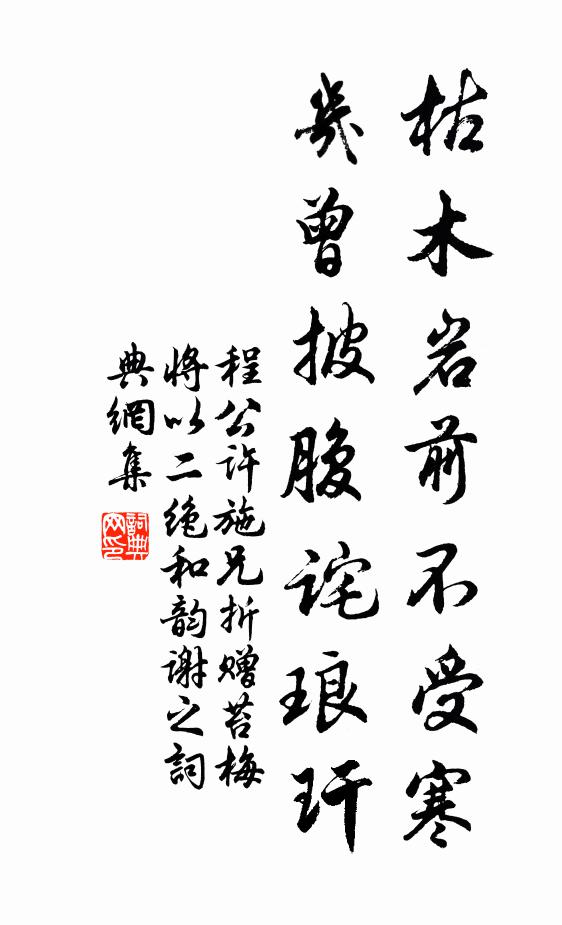 枯木岩前不受寒
几曾披腹诧琅玕
程公许施兄折赠苔梅
将以二绝和韵谢之詞
典網集
詞典网印